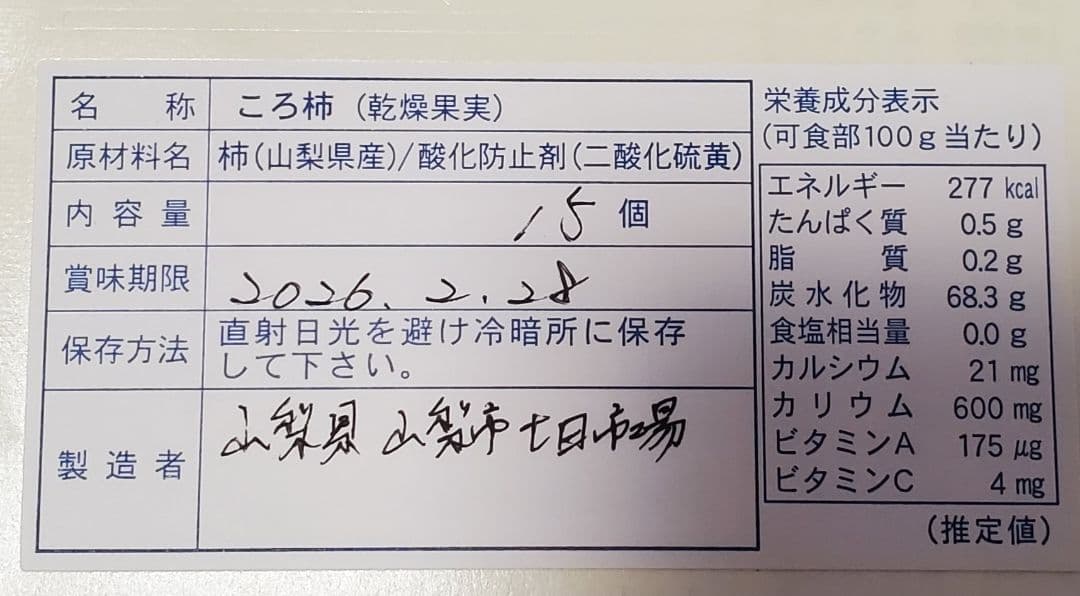 名称 ころ柿（乾燥果実）
原材料名 柿（山梨県産）/酸化防止剤（二酸化硫黄）
内容量 15個
賞味期限 2026.2.28
保存方法 直射日光を避け冷暗所に保存
して下さい。
製造者 山梨県 山梨市 七日市場
栄養成分表示
（可食部100g当たり）
エネルギー 277 kcal
たんぱく質 0.5 g
脂質 0.2 g
炭水化物 68.3 g
食塩相当量 0.0 g
カルシウム 21 mg
カリウム 600 mg
ビタミンA 175 μg
ビタミンC 4 mg
（推定値）